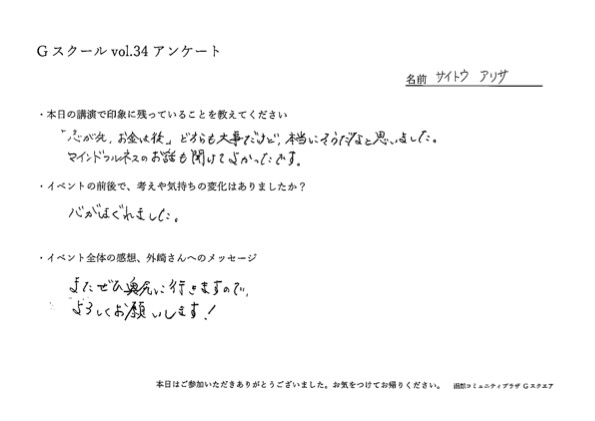 Gスクール vol.34 アンケート
名前 サイトウ アリサ
・本日の講演で印象に残っていることを教えてください
「心が先、お金は後」どちらも大事だけど、本当にそうだなと思いました。
マインドフルネスのお話も聞けてよかったです。
・イベントの前後で、考えや気持ちの変化はありましたか?
心がほぐれました。
・イベント全体の感想、外崎さんへのメッセージ
またぜひ奥尻に行きますので、
よろしくお願いします!
本日はご参加いただきありがとうございました。お気をつけてお帰りください。 函館コミュニティプラザ Gスクエア